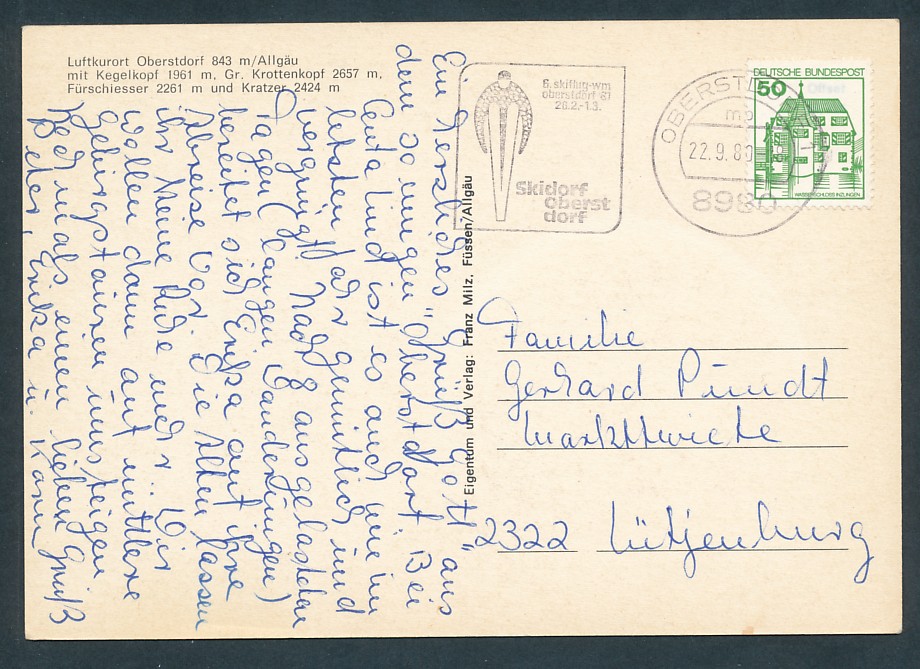 Luftkurort Oberstdorf 843 m/Allgäu
mit Kegelkopf 1961 m, Gr. Krottenkopf 2657 m,
Fürschiesser 2261 m und Kratzer 2424 m
Ein herzliches "Grüß Gott" aus
dem sonnigen Oberstdorf. Bei
Centa Lund ist es auch wie im
letzten Jahr gemütlich und
vergnügt. Nach 8 ausgelasteten
Tagen (langen Wanderungen)
bereitet sich Erika auf ihre
Abreise vor. Die Alten lassen
ihr keine Ruhe mehr. Wir
wollen dann auf mittlere
Gebirgstouren umsteigen
Nochmals einen lieben Gruß
Peter, Erika u. Karin
Eigentum und Verlag: Franz Milz, Füssen/Allgäu
6.skiflug-wm
oberstdorf '81
26.2.-1.3.
Skidorf
oberst
dorf
OBERSTDO
mb
22.9.80
8980
DEUTSCHE BUNDESPOST
50
Offset
WASSERSCHLOSS INZLINGEN
Familie
Gerhard Pundt
Markttwiete
2322 Lütjenburg